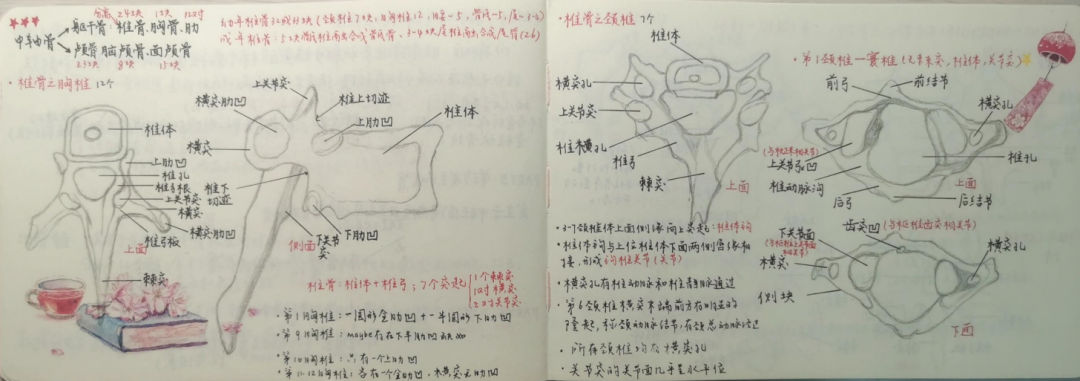 分为 24块 1块 12对
中轴骨 躯干骨 椎骨、胸骨、肋
颅骨 脑颅骨、面颅骨
23块 8块 15块
幼年椎骨32或33块(颈椎7块,胸椎12,腰-5,骶-5,尾-3-4)
成年椎骨:5块骶椎融合成骶骨、3-4块尾椎融合成尾骨(26)
·椎骨之胸椎 12个
椎体
上肋凹
椎孔
椎弓根
上关节突
横突
横突肋凹
椎弓板
棘突
上面
上关节突
横突肋凹
椎上切迹
椎体
上肋凹
横突
椎下切迹
下关节突
下肋凹
侧面
椎骨:椎体+椎弓;7个突起
1个棘突
1对横突
2对关节突
·第1胸椎:一圆形全肋凹+一半圆形下肋凹
·第9胸椎:maybe存在下半肋凹缺
·第10胸椎:只有一个上肋凹
·第11、12胸椎:各有一个全肋凹,横突无肋凹
·椎骨之颈椎 7个
椎体
横突孔
上关节突
椎横孔
椎弓
棘突
上面
·第1颈椎—寰椎(无棘突,椎体,关节突)
前弓
前结节
横突孔
上关节凹
椎动脉沟
后弓
椎孔
上面
后结节
·3-7颈椎体上面侧缘向上突起:椎体钩
·椎体钩与上位椎体下面两侧唇缘相接,形成钩椎关节(关节)
·横突孔有椎动脉和椎静脉通过
·第6颈椎横突末端前方有明显的隆起,称颈动脉结节,有颈总动脉经过
·所有颈椎均有横突孔
·关节突的关节面几乎呈水平位
下关节面
齿突凹(与枢椎齿突相关节)
横突孔
横突
侧块
下面